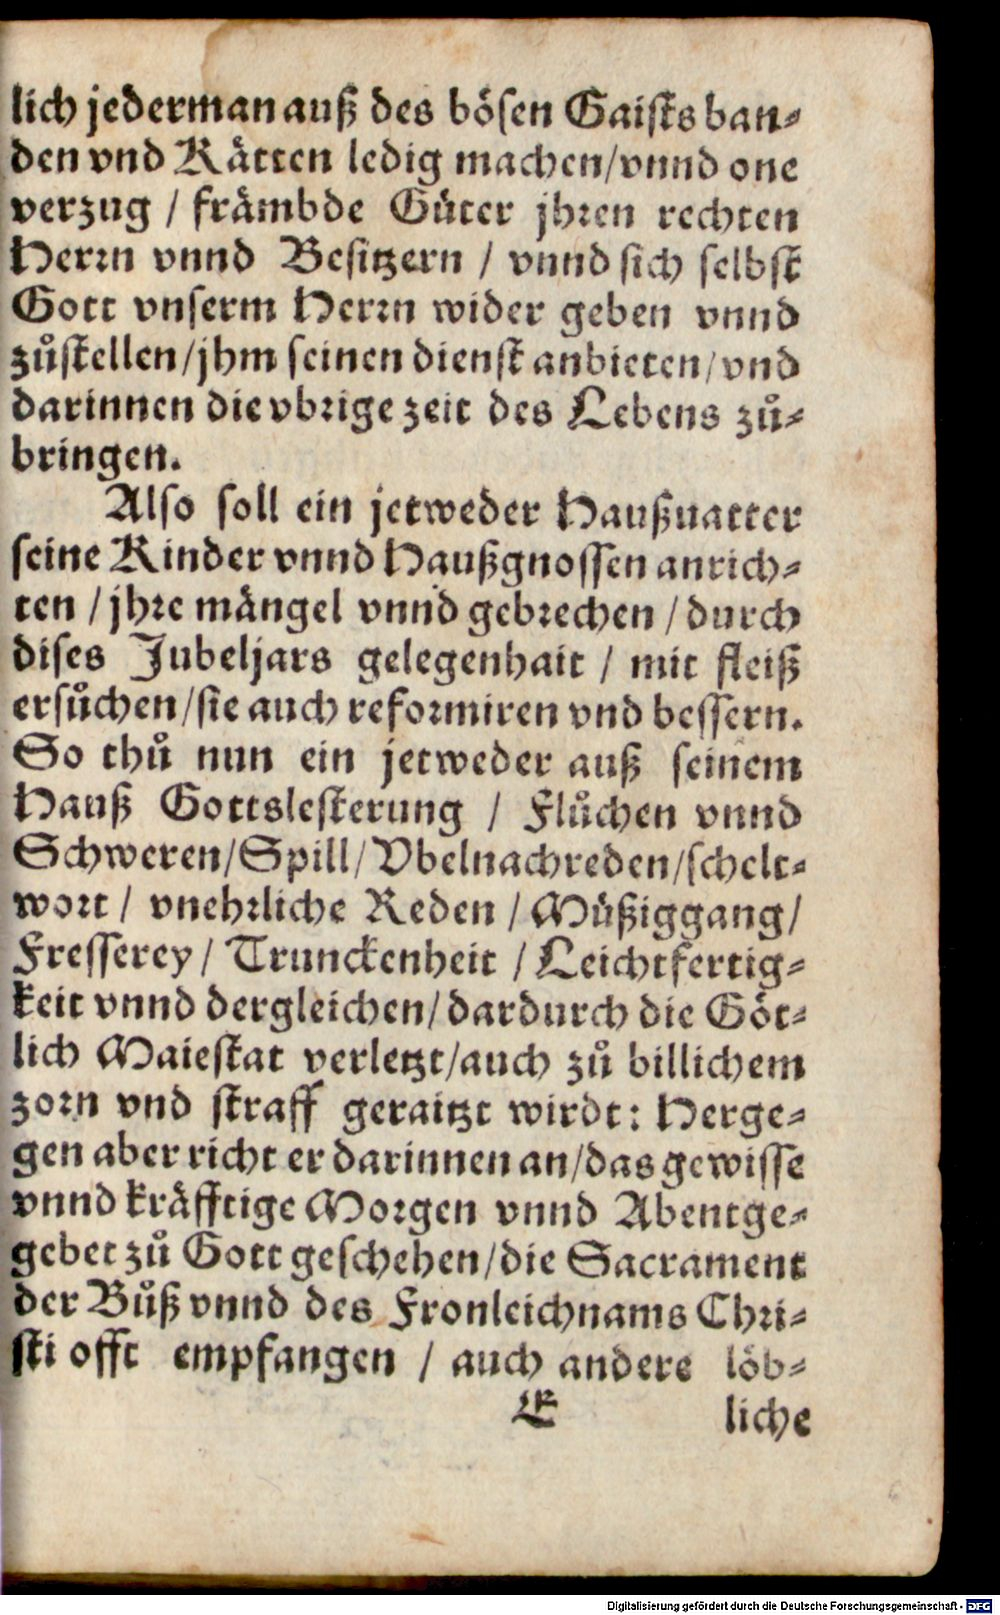 lich jederman auß des bösen Gaists ban⸗
den vnd Kätten ledig machen/vnnd one
verzug / främbde Güter jhren rechten
Herrn vnnd Besitzern / vnnd sich selbst
Gott vnserm Herrn wider geben vnnd
zůstellen/jhm seinen dienst anbieten/vnd
darinnen die vbrige zeit des Lebens zů⸗
bringen.
Also soll ein jetweder Haußuatter
seine Kinder vnnd Haußgnossen anrich⸗
ten / jhre mängel vnnd gebrechen / durch
dises Jubeljars gelegenhait / mit fleiß
ersůchen/sie auch reformiren vnd bessern.
So thů nun ein jetweder auß seinem
Hauß Gottslesterung / Flůchen vnnd
Schweren/Spill/Vbelnachreden/schelt⸗
wort / vnehrliche Reden / Müßiggang/
Fresserey / Trunckenheit / Leichtfertig⸗
keit vnnd dergleichen/dardurch die Göt⸗
lich Maiestat verletzt/auch zů billichem
zorn vnd straff geraitzt wirdt: Herge⸗
gen aber richt er darinnen an/das gewisse
vnnd kräfftige Morgen vnnd Abentge⸗
gebet zů Gott geschehen/die Sacrament
der Bůß vnnd des Fronleichnams Chri⸗
sti offt empfangen / auch andere löb⸗
E liche
Digitalisierung gefördert durch die Deutsche Forschungsgemeinschaft - DFG